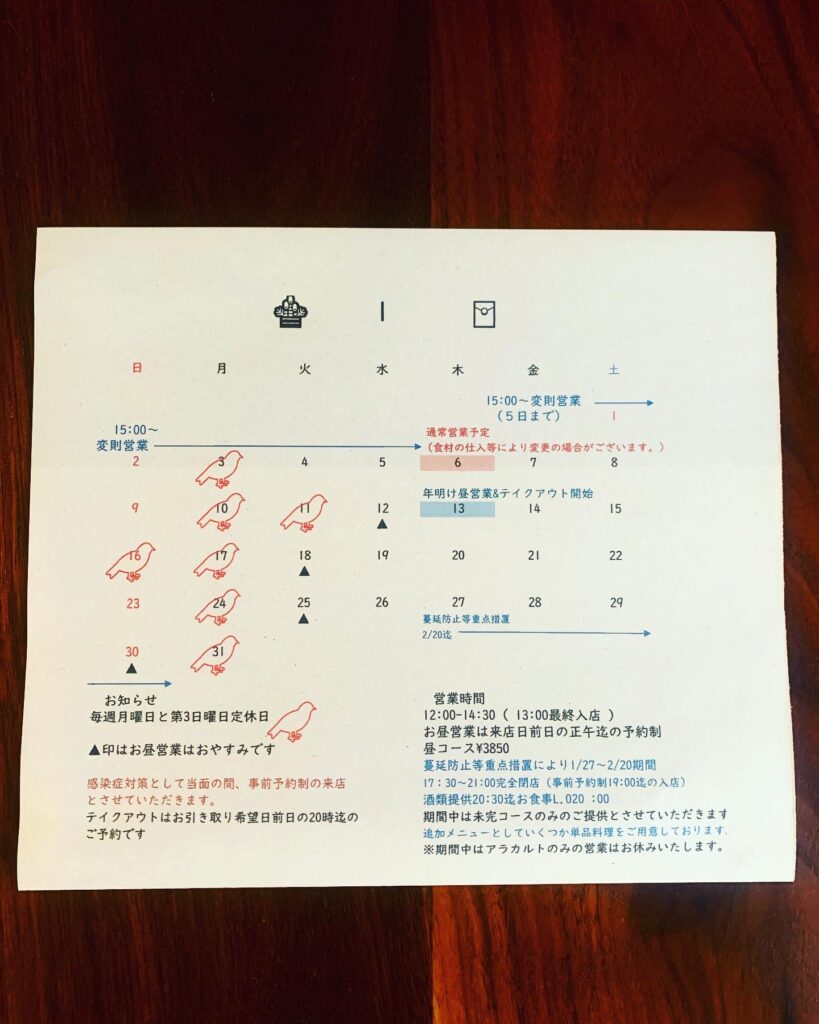 1
日 月 火 水 木 金 土
15:00～変則営業
（５日まで） 1
15:00～
変則営業
通常営業予定
（食材の仕入等により変更の場合がございます。）
2 3 4 5 6 7 8
年明け昼営業&テイクアウト開始
9 10 11 12 13 14 15
▲
16 17 18 19 20 21 22
▲
23 24 25 26 27 28 29
▲
蔓延防止等重点措置
2/20迄
30 31
▲
お知らせ
毎週月曜日と第3日曜日定休日
▲印はお昼営業はおやすみです
感染症対策として当面の間、事前予約制の来店
とさせていただきます。
テイクアウトはお引き取り希望日前日の20時迄の
ご予約です
営業時間
12:00-14:30（ 13:00最終入店 ）
お昼営業は来店日前日の正午迄の予約制
昼コース¥3850
蔓延防止等重点措置により1/27～2/20期間
17：30～21:00完全閉店（事前予約制19:00迄の入店）
酒類提供20:30迄お食事L.O20 :00
期間中は未完コースのみのご提供とさせていただきます
追加メニューとしていくつか単品料理をご用意しております.
※期間中はアラカルトのみの営業はお休みいたします。